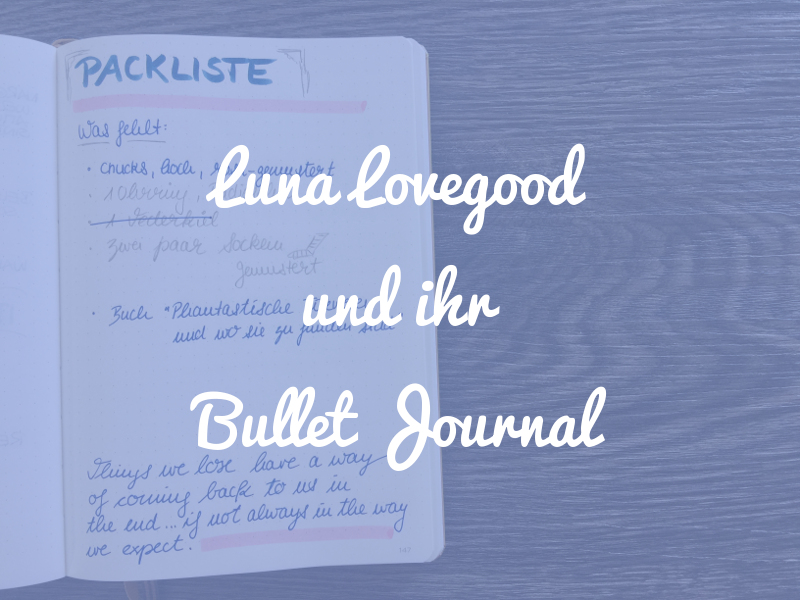 PACKLISTE
Was fehlt:
• Chucks, hoch, rosa-gemustert
• 1 Ohrring,
• 1 Federkiel
• Zwei paar Socken
gemustert
• Buch "Phantastische
und wo sie zu finden sind"
Things we lose have a way
of coming back to us in
the end... if not always in the way
we expect.
Luna Lovegood
und ihr
Bullet Journal